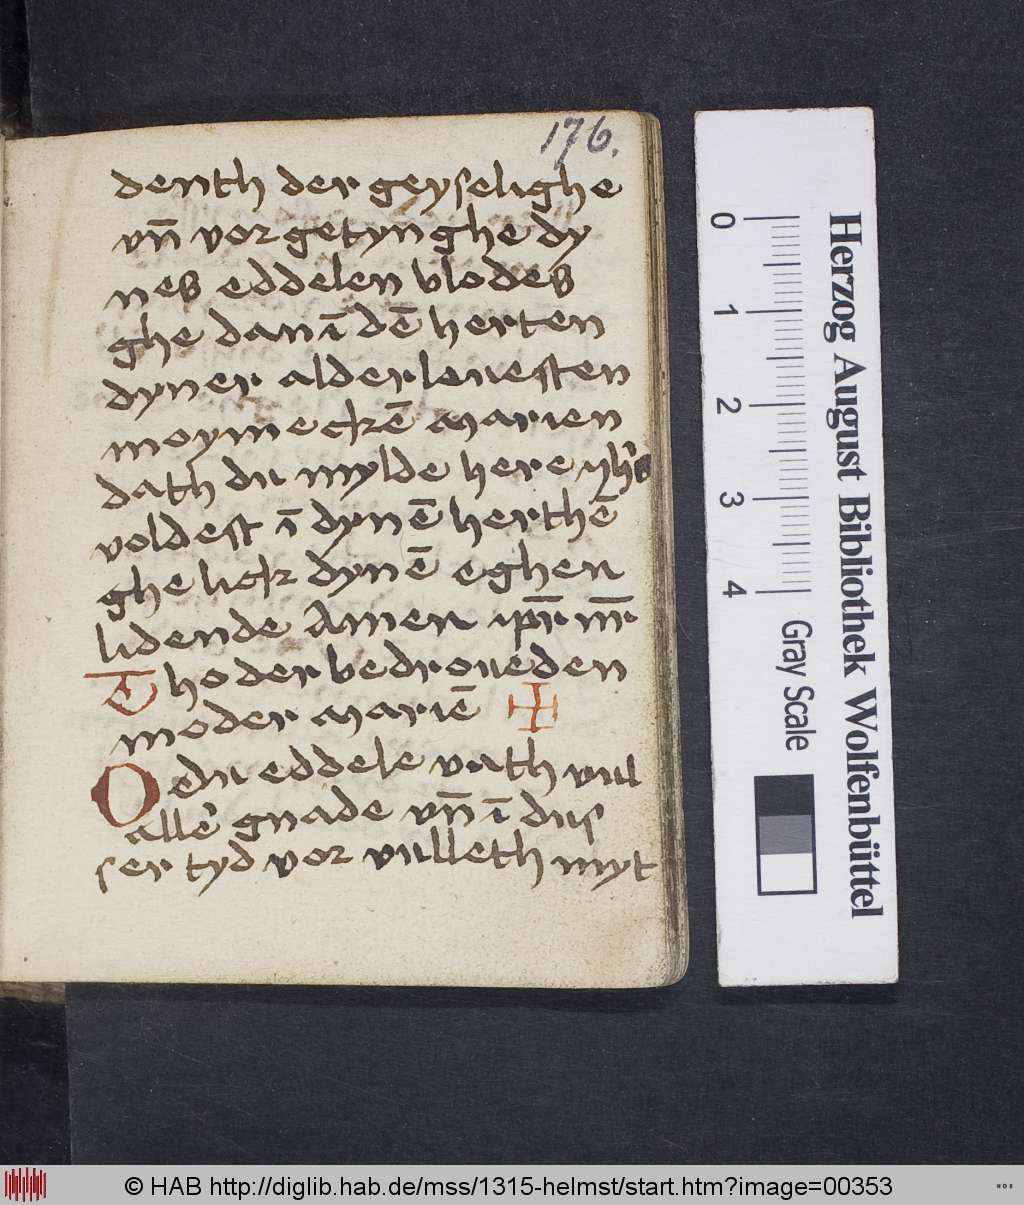 176.
denth der geyselighe
vn̄ vor getynghe dy
nes eddelen blodes
ghe dan ī dē herten
dyner alder leuesten
moymeckē marien
dath du mylde here yhs
voldest ī dynē herthē
ghe lick dynē eghen
lidende Amen
Tho der bedroueden
moder mariē
O edu eddele vath vul
alle gnade vn̄ ī dus
ser tyd vor vulleth myt
0
1
2
3
4
Gray Scale
Herzog August Bibliothek Wolfenbüttel
© HAB http://diglib.hab.de/mss/1315-helmst/start.htm?image=00353